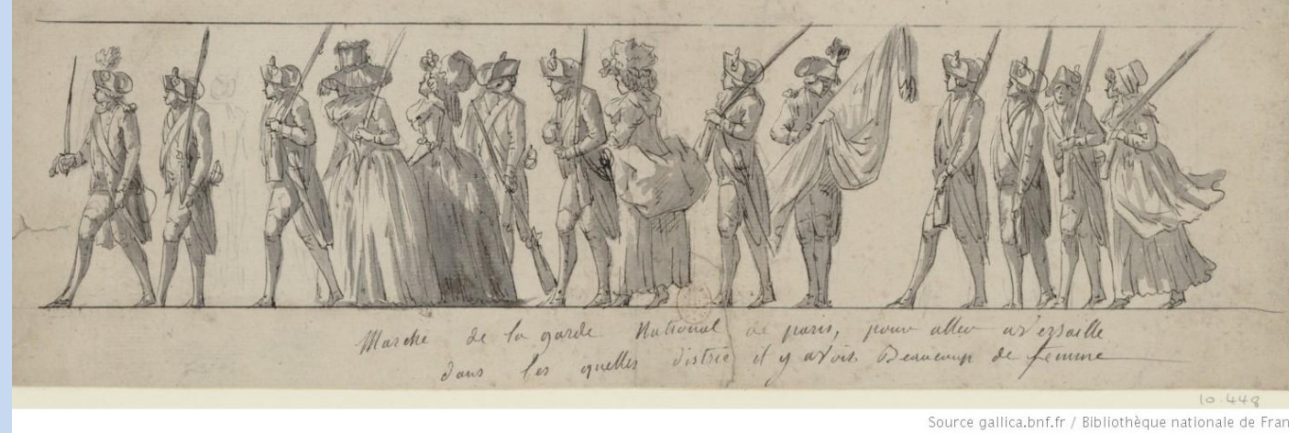 Marche de la garde National de paris, pour aller a versaille
dans les quelles district il y avois Beaucoup de femme
10.448
Source gallica.bnf.fr / Bibliothèque nationale de Fran